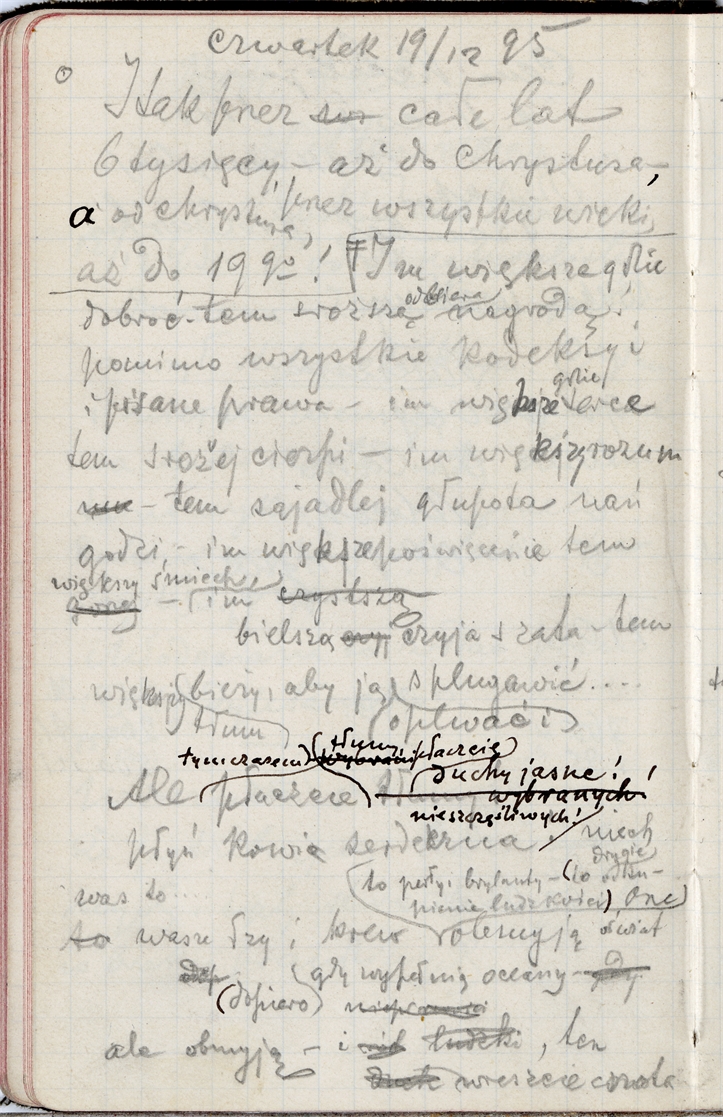 czwartek 19/12 95
I tak przez całe lat
6 tysięcy – aż do Chrystusa,
a od Chrystusa, przez wszystkie wieki,
aż do 1990! Im większa gdzie
dobroć – tem sroższa odbiera nagroda!
pomimo wszystkie kodeksy i
i pisane prawa – im większe gdzie serce
tem srożej cierpi – im większy rozum
– tem zajadlej głupota nań
godzi – im większe poświęcenie tem
większy śmiech – im czystszą
bielszą czyja szata – tem
większy bieży, aby ją splugawić....
tłum (oplwać)
tymczasem tłumy płaczcie
duchy jasne!
Ale płaczcie wybranych!
nieszczęśliwych!
płyń krwie serdeczna niech
drogie
was to... to perły, brylanty – (to odku-
pienie ludzkości) One
to wasze łzy i krew oświat
gdy wypełnią oceany –
(dopiero)
ale obmyją – i ludzki, ten
wreszcie